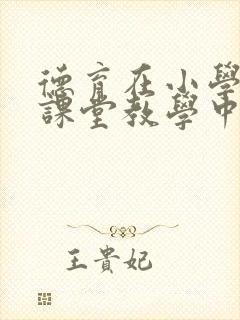 德育在小學
課堂教學中
王貴妃